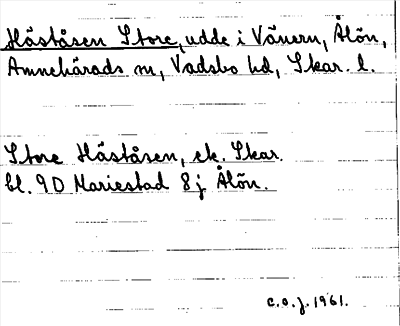 Håståsen Store, udde i Vänern, Ålön,
Amnehärads sn, Vadsbo hd, Skar. l.
Store Håståsen, ek. Skar.
bl. 9D Mariestad 8j Ålön.
c.o.j. 1961.